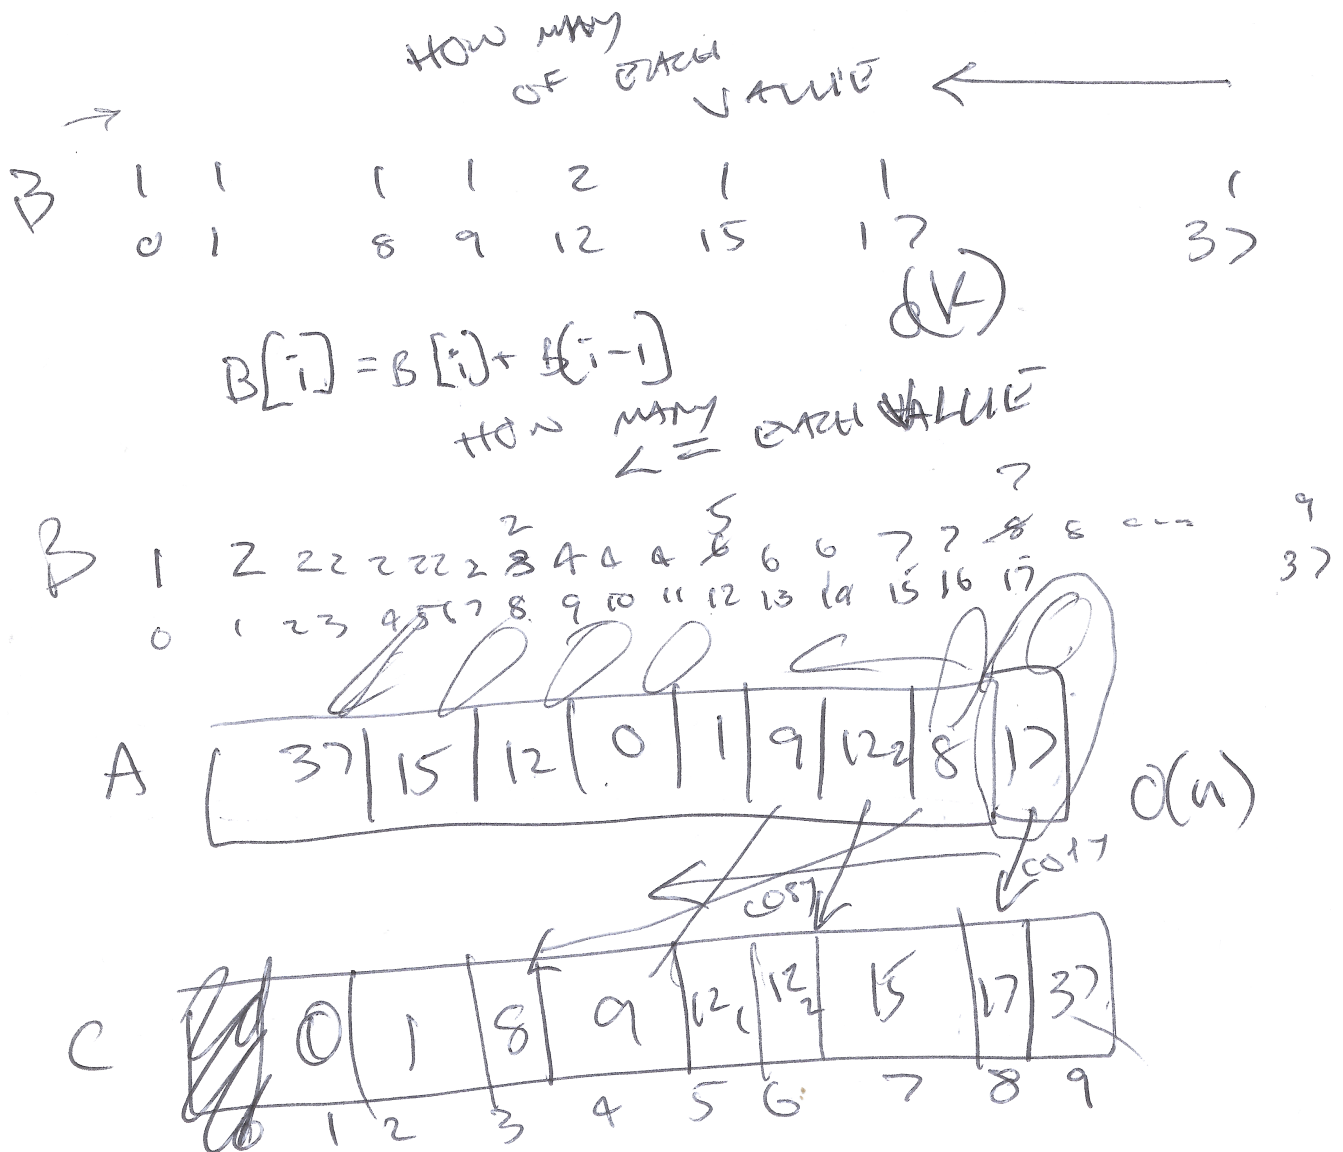 HOW MANY
OF EACH
VALUE
B 1 1 1 1 2 1 1 1
0 1 8 9 12 15 17 37
O(K)
B[i] = B[i] + B[i-1]
HOW MANY
<= EACH VALUE
2 5 7
B 1 2 2 2 2 2 2 2 3 4 4 4 6 6 6 7 7 8 8 --- 9
0 1 2 3 4 5 6 7 8 9 10 11 12 13 14 15 16 17 37
A 37 15 12 0 1 9 12 2 8 17 O(n)
COPY
COPY
C 0 1 8 9 12 1 12 2 15 17 37
0 1 2 3 4 5 6 7 8 9